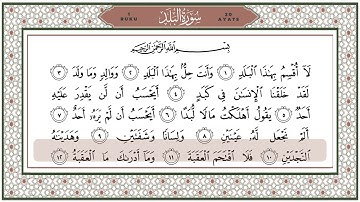 1
RUKU
سُورَةُ الْبَلَدِ
20
AYATS
بِسْمِ اللَّهِ الرَّحْمَٰنِ الرَّحِيمِ
لَا أُقْسِمُ بِهَٰذَا الْبَلَدِ ١ وَأَنتَ حِلٌّ بِهَٰذَا الْبَلَدِ ٢ وَوَالِدٍ وَمَا وَلَدَ ٣
لَقَدْ خَلَقْنَا الْإِنسَٰنَ فِي كَبَدٍ ٤ أَيَحْسَبُ أَن لَّن يَقْدِرَ عَلَيْهِ
أَحَدٌ ٥ يَقُولُ أَهْلَكْتُ مَالًا لُّبَدًا ٦ أَيَحْسَبُ أَن لَّمْ يَرَهُ أَحَدٌ ٧
أَلَمْ نَجْعَل لَّهُ عَيْنَيْنِ ٨ وَلِسَانًا وَشَفَتَيْنِ ٩ وَهَدَيْنَٰهُ
النَّجْدَيْنِ ١٠ فَلَا اقْتَحَمَ الْعَقَبَةَ ١١ وَمَا أَدْرَىٰكَ مَا الْعَقَبَةُ ١٢